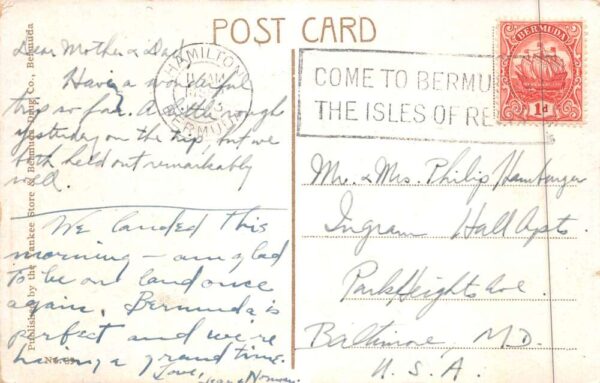 POST CARD
Dear Mother & Dad,
Having a wonderful
trip so far. A little rough
yesterday on the trip, but we
both held out remarkably
well.
We landed this
morning - am glad
to be on land once
again. Bermuda is
perfect and we're
having a grand time.
Love,
HAMILTON
BERMUDA
COME TO BERMU
THE ISLES OF RE
BERMUDA
1d
Mr. & Mrs. Philip Hamburger
Ingram Hall Apts.
Park Heights Ave.
Baltimore, M.D.
U.S.A.
Published by the Yankee Store & Bermuda Drug Co., Bermuda